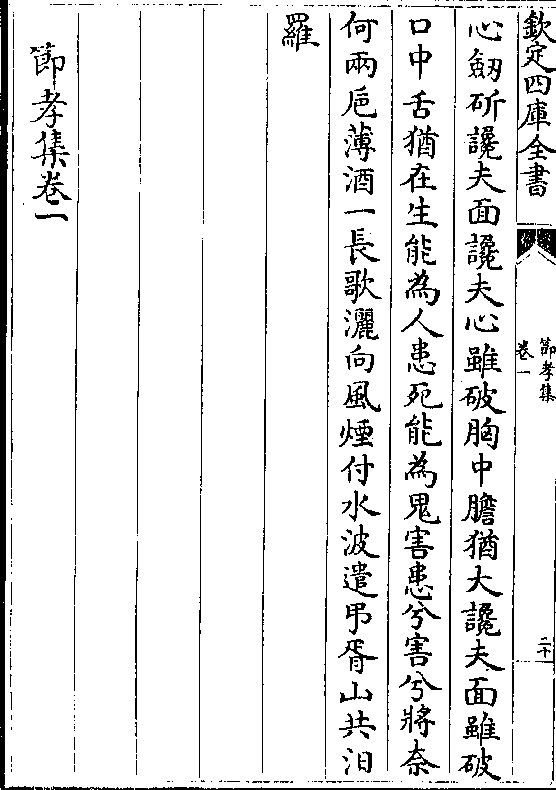 欽定四庫全書
節孝集
卷一
二十
心劒斫讒夫面讒夫心雖破胸中膽猶大讒夫面雖破
口中舌猶在生能為人患死能為鬼害患兮害兮將奈
何兩巵薄酒一長歌灑向風煙付水波遣弔胥山共汨
羅
節孝集卷一